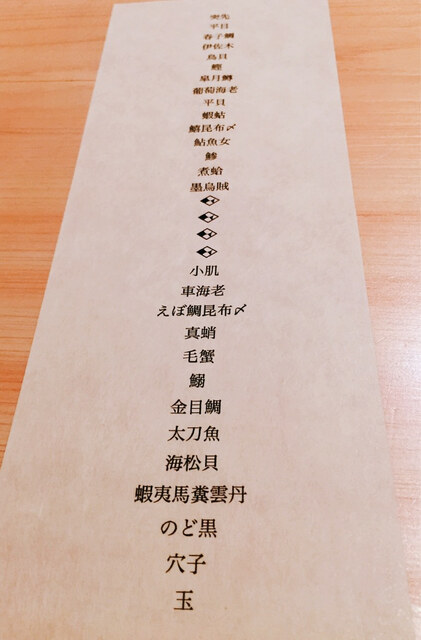 突先
平目
春子鯛
伊佐木
鳥貝
鰹
皐月鱒
葡萄海老
平貝
蝦蛄
鱚昆布〆
鮎魚女
鯵
煮蛤
墨烏賊
小肌
車海老
えぼ鯛昆布〆
真蛸
毛蟹
鰯
金目鯛
太刀魚
海松貝
蝦夷馬糞雲丹
のど黒
穴子
玉